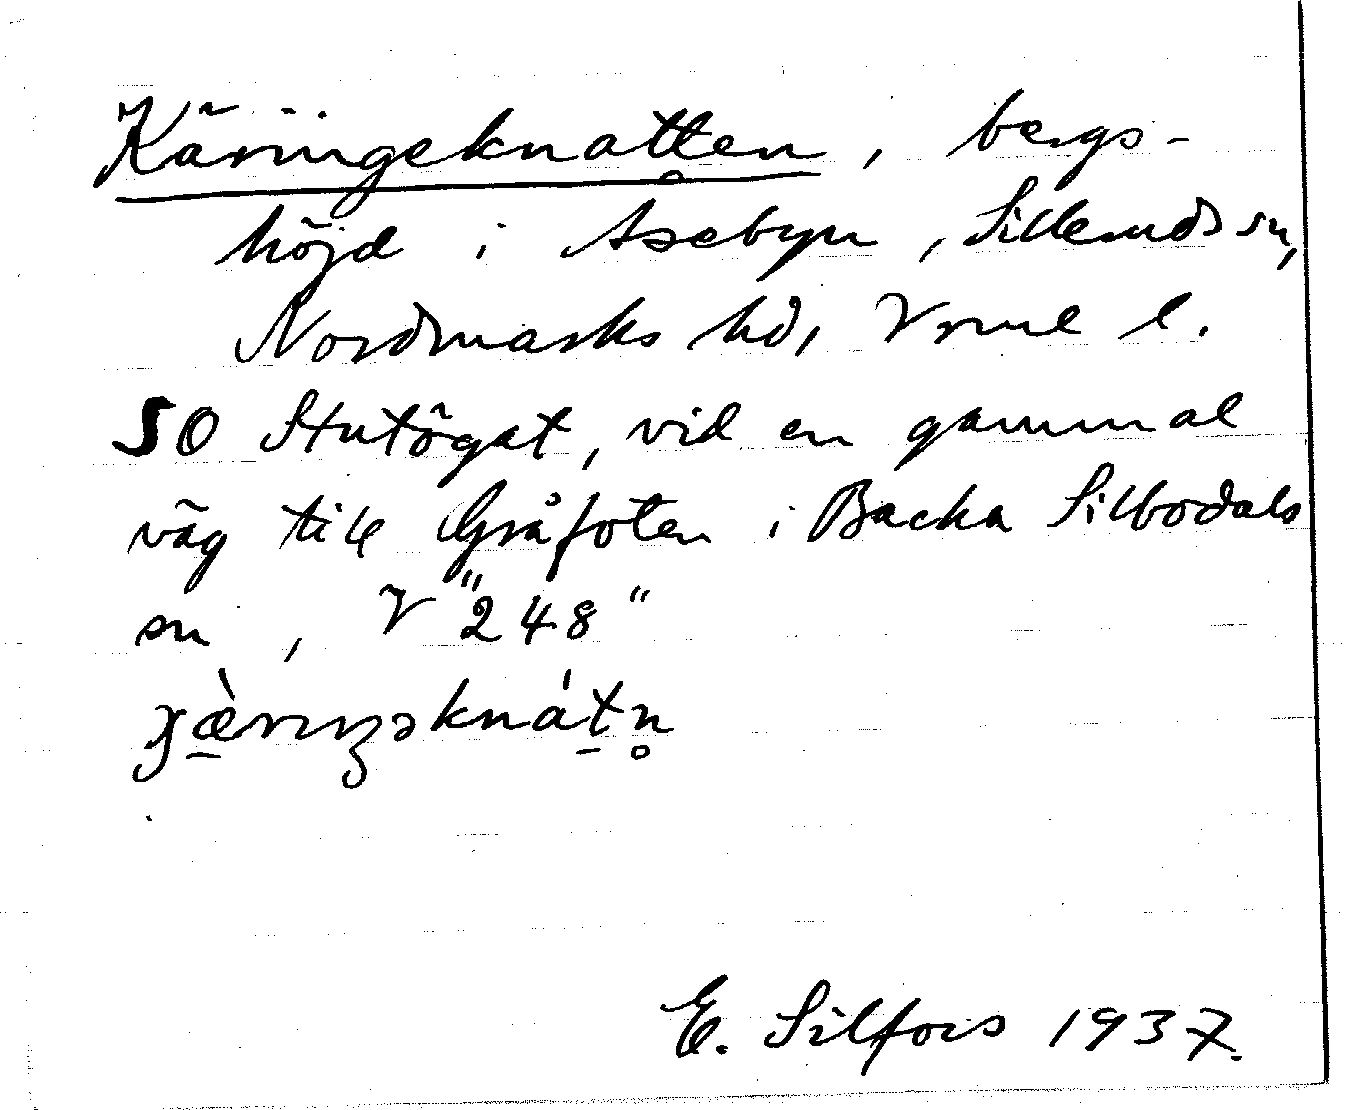 Käringeknatten, bergs-
höjd i Asebyn, Silleruds sn,
Nordmarks hd, Vrml l.
SO Stutögat, vid en gammal
väg till Gråfoten i Backa Silbodals
sn, V "248"
E. Silfors 1937.